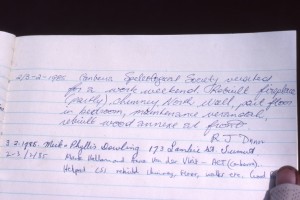 2/3-2-1985 Canberra Speleological Society visited
for a work weekend. Rebuilt fireplace
(partly), chimney, North Wall, part floor
in bedroom, maintenance verandah,
rebuilt wood annexe at front
R J Dunn
3.2.1985. Mick & Phyllis Dowling 173 Lambie St. Summit
2-3/2/85 Mark Hallam and Anne Van der Vlist - ACT (Canberra).
Helped CSS rebuild chimney, floor, walls etc. Good